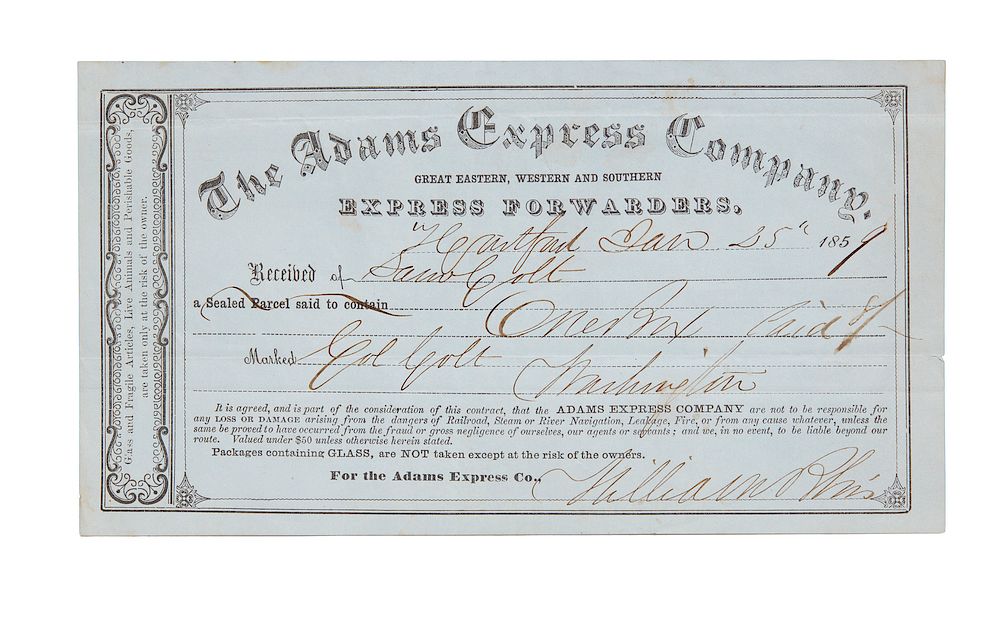 Glass and Fragile Articles, Live Animals and Perishable Goods,
are taken only at the risk of the owner.
The Adams Express Company.
GREAT EASTERN, WESTERN AND SOUTHERN
EXPRESS FORWARDERS.
Hartford Jan 25" 1859
Received of Saml Colt
a Sealed Parcel said to contain
One Box Paid
Marked Col Colt
Washington
It is agreed, and is part of the consideration of this contract, that the ADAMS EXPRESS COMPANY are not to be responsible for
any LOSS OR DAMAGE arising from the dangers of Railroad, Steam or River Navigation, Leakage, Fire, or from any cause whatever, unless the
same be proved to have occurred from the fraud or gross negligence of ourselves, our agents or servants; and we, in no event, to be liable beyond our
route. Valued under $50 unless otherwise herein stated.
Packages containing GLASS, are NOT taken except at the risk of the owners.
For the Adams Express Co., William